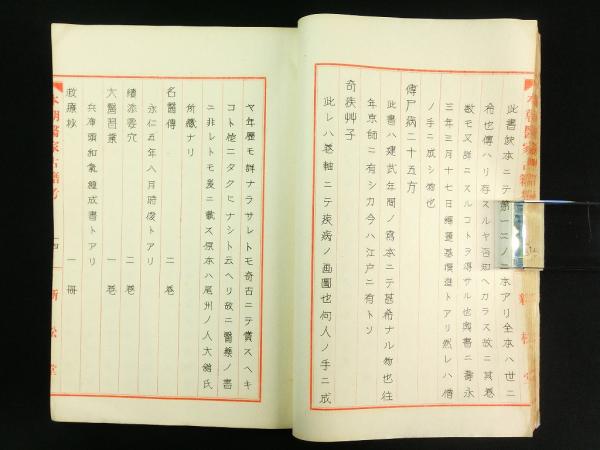 此書欽本ニテ第一二ノ 本アリ全本ハ世ニ
希也傳ハリ存スルヤ否知ヘカラス故ニ其巻
數モ又詳ニスルコトヲ得サル也奧書ニ壽永
三年三月十七日 基 進トアリ然レハ僧
ノ手ニ成シ物也
傳尸病二十五方
此書ハ建武年間ノ寫本ニテ甚希ナル物也往
年京師ニ有シカ今ハ江戸ニ有トソ
奇疾艸子
此レハ巻軸ニテ疾病ノ画圖也何人ノ手ニ成
ヤ年歴モ詳ナラサレトモ奇古ニテ賞スヘキ
コト他ニタクヒナシト云ヘリ故ニ醫藥ノ書
ニ非レトモ爰ニ載ス原本ハ尾州ノ人大舘氏
所藏ナリ
名醫傳 二巻
永仁五年八月時俊トアリ
續添要穴 二巻
大醫習業 一巻
兵庫頭和氣種成書トアリ
救療抄 一冊
本朝醫家古籍考
四